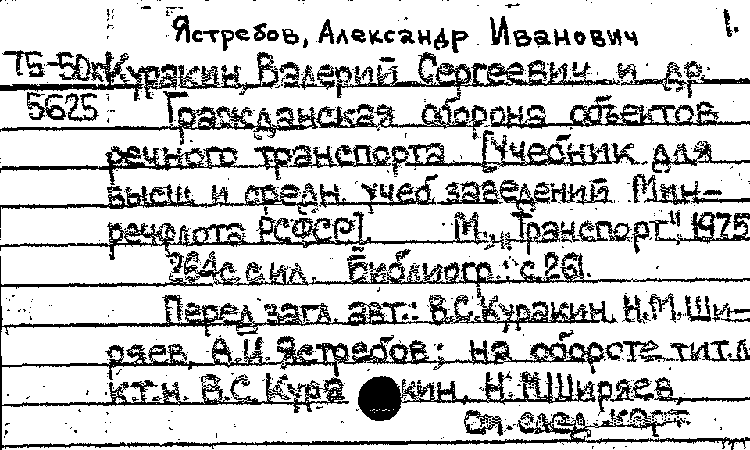 Ястребов, Александр Иванович 1.
75-50к Куракин, Валерий Сергеевич и др.
5625 Гражданская оборона объектов
речного транспорта [Учебник для
высш. и средн. учеб. заведений Мин-
речфлота РСФСР]. М., "Транспорт", 1975
264 с. с ил. Библиогр.: с. 261.
Перед загл. авт.: В.С. Куракин, Н.М. Ши-
ряев, А.И. Ястребов; на обороте тит. л.
к.т.н. В.С. Куракин, Н.М. Ширяев,
См. след. карт.